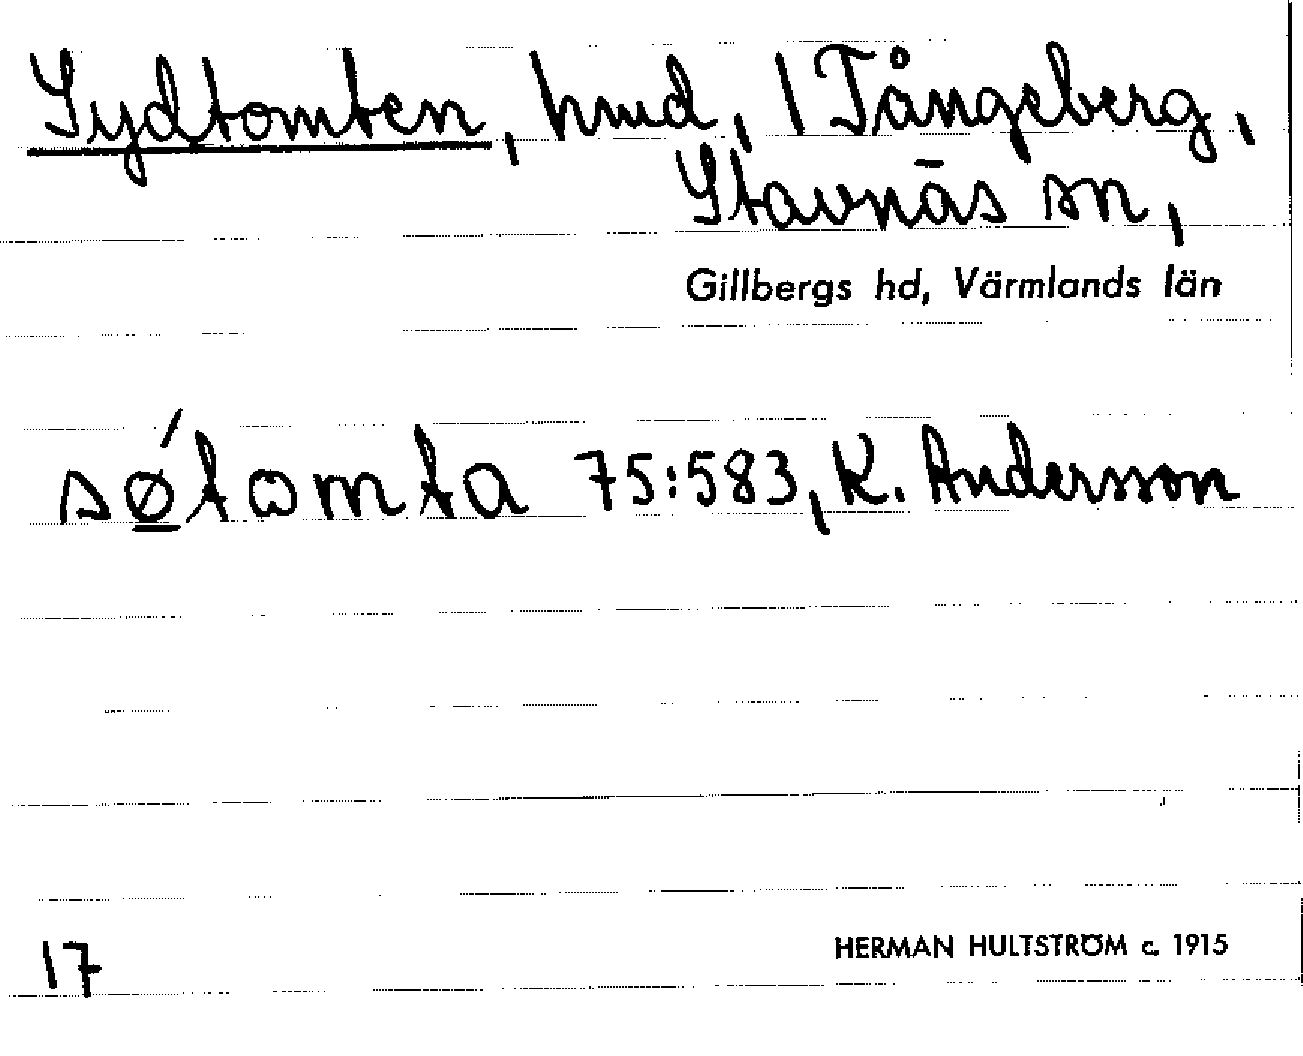 Sydtomten, hmd, 1 Tångeberg,
Stavnäs sn,
Gillbergs hd, Värmlands län
sǿ̲tomta 75:583, K. Andersson
17
HERMAN HULTSTRÖM c. 1915